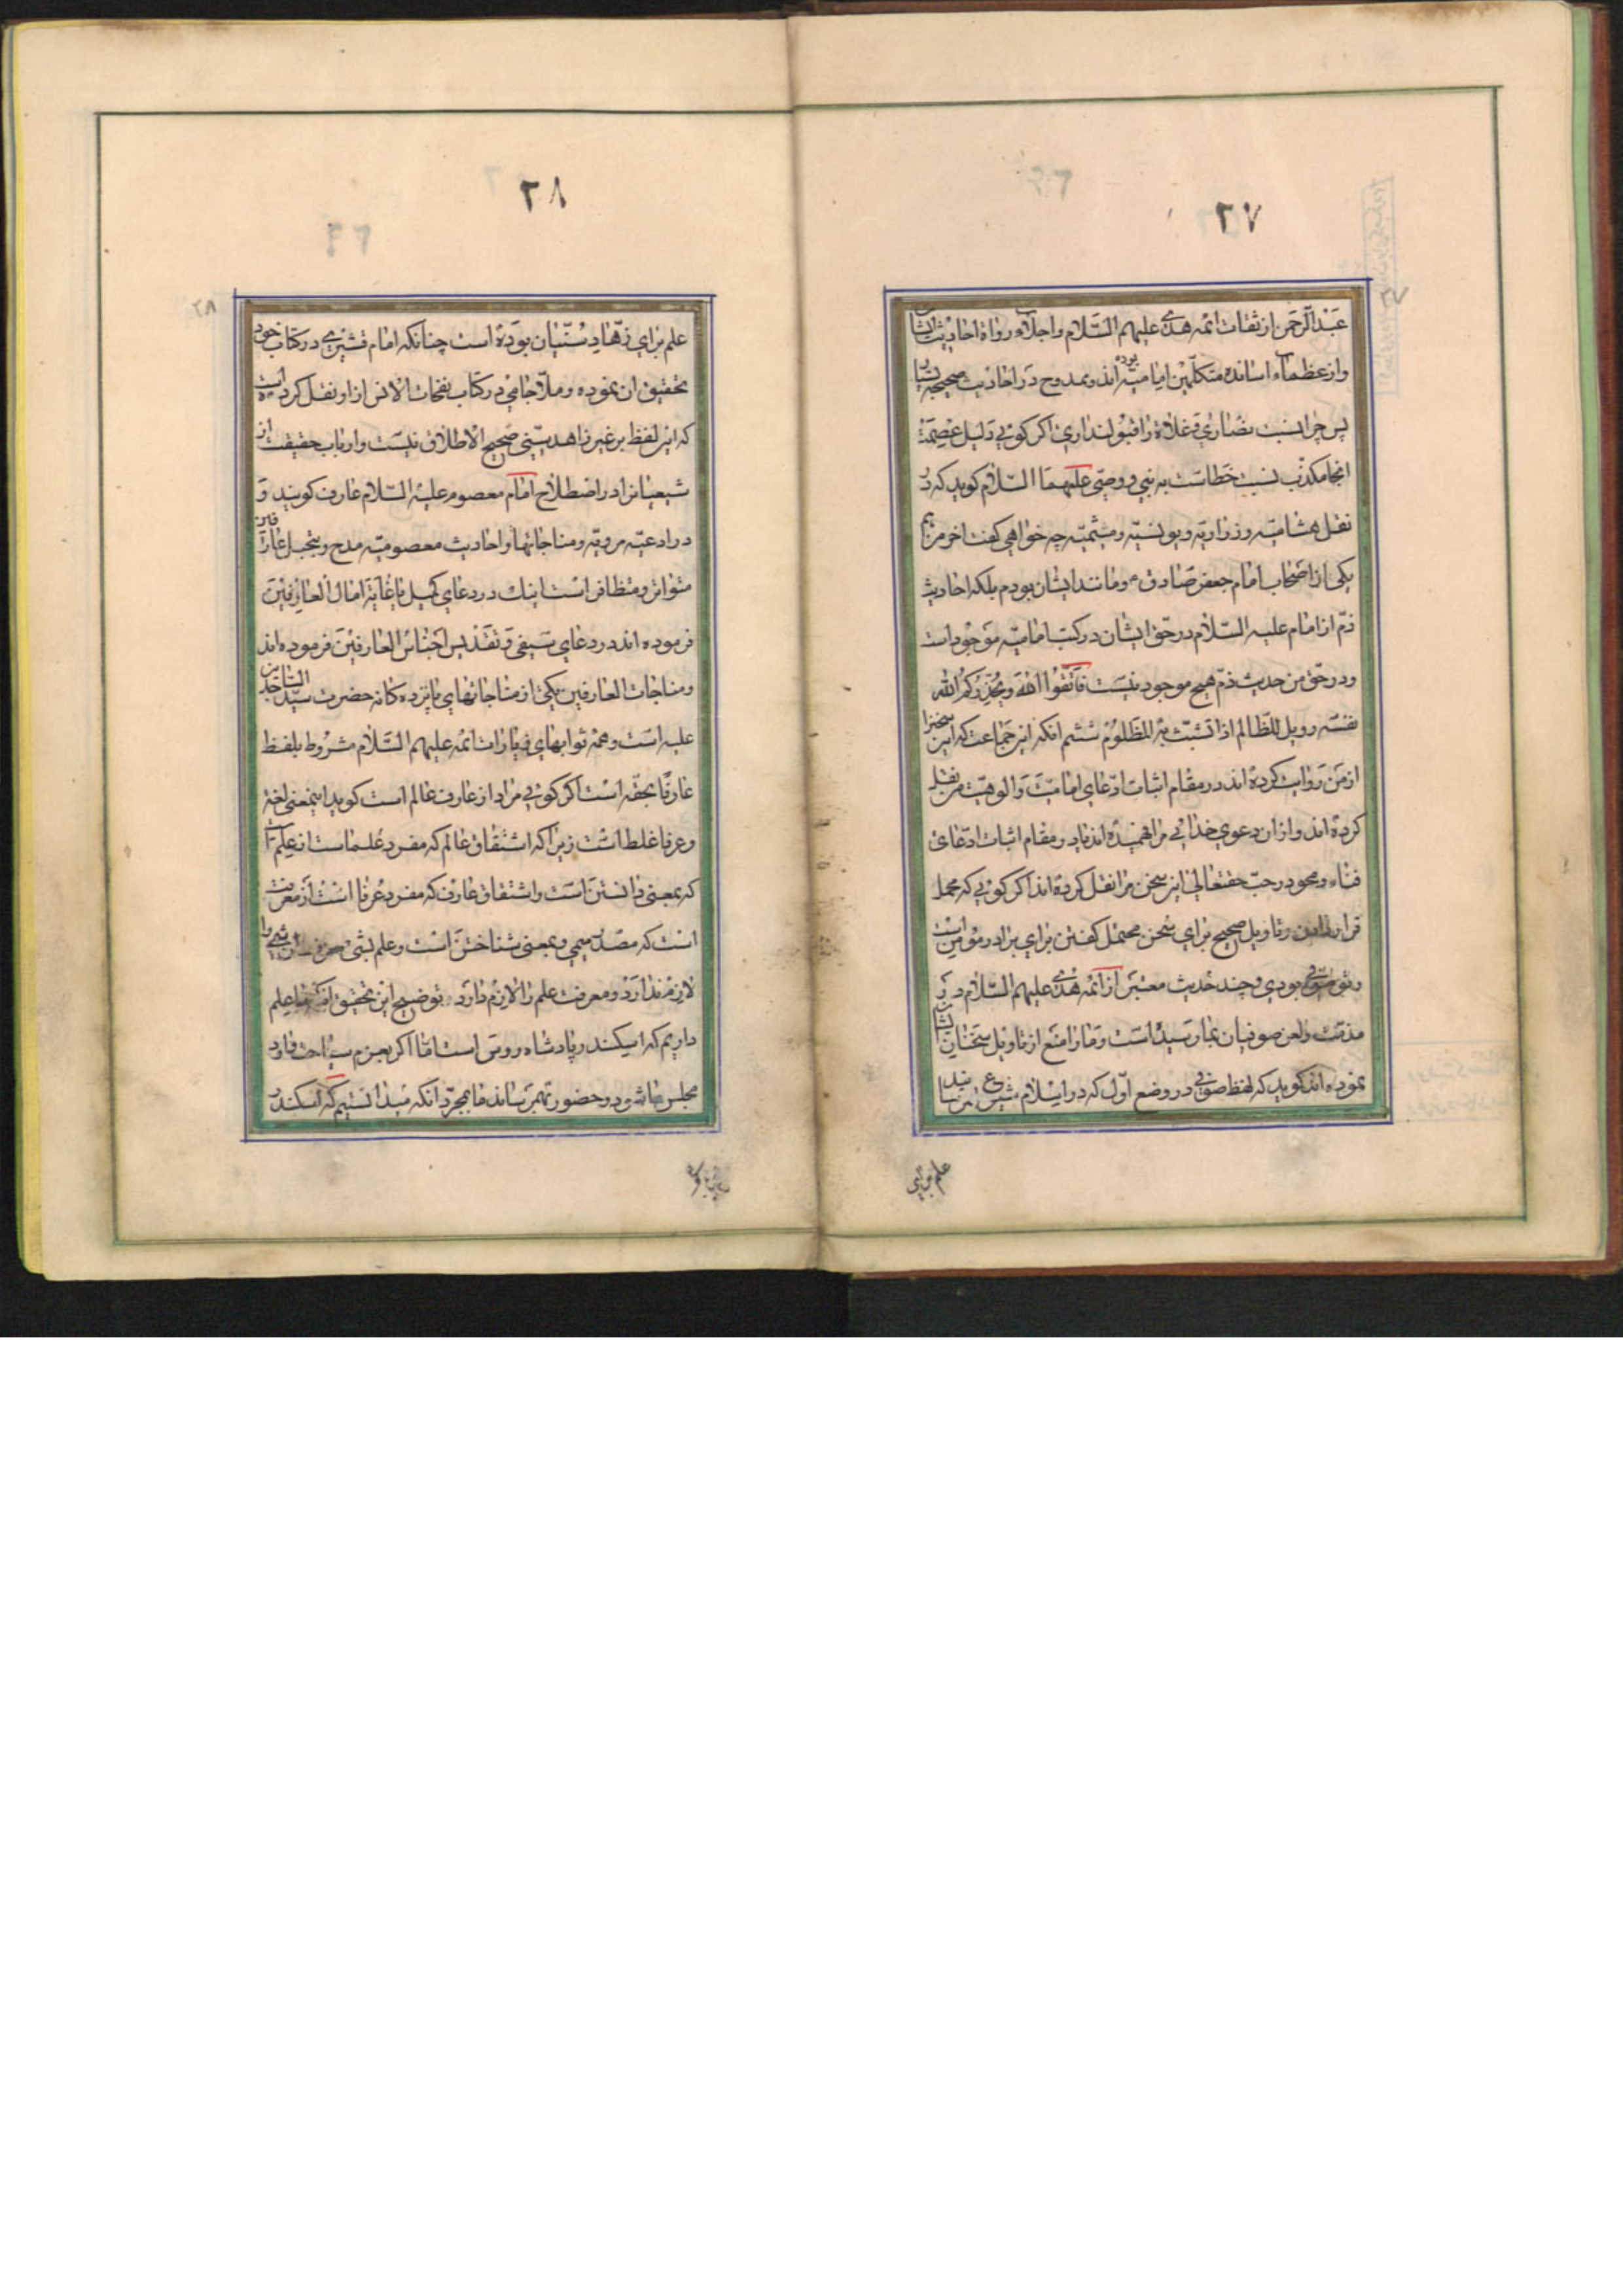 ۲۷
عبدالرحمن از ثقات ائمه هدی علیهم السلام و اجلاء رواة احادیث ایشان
و از عظماء اساتذه متکلمین امامیه بوده اند و ممدوح در احادیث صحیحه ایشان
پس چرا نسبت نصاری و غلاة را قبول نداری اگر گویی دلیل عصمت
انجا مکذب نسبت خطاست به نبی و وصی علیهما السلام گوید که در
نقل هشامیه و زراریه و یونسیه و میثمیه چه خواهی گفت اخر من هم
یکی از اصحاب امام جعفر صادق ع و مانند ایشان بودم بلکه احادیث
ذم از امام علیه السلام در حق ایشان در کتب امامیه موجود است
و در حق من حدیث ذم هیچ موجود نیست فَاتَّقُوا اللهَ وَیُحَذِّرُکُمُ اللهُ
نفسَه و ویل للظالم اذا تشبث به المظلوم ششم انکه این جماعت که این سخنرا
از من روایت کرده اند در مقام اثبات ادعای امامیت و الوهیت من نقل
کرده اند و از ان دعوی خدایی مرا فهمیده اند یا در مقام اثبات ادعای
فناء و محو در حب حقتعالی این سخن مرا نقل کرده اند اگر گویی که محمل
قرار دادن و تاویل صحیح برای سخن محتمل گفتن برای برادر مؤمن است
و تو صوفی بودی و چند حدیث معتبر از ائمه هدی علیهم السلام در
مذمت و لعن صوفیان بما رسیده است و ما را منع از تاویل سخنان ایشان
نموده اند گوید که لفظ صوفی در وضع اول که در اسلام شیوع
علم برای
۲۸
علم برای زهاد سنیان بوده است چنانکه امام قشیری در کتاب خود
تحقیق ان نموده و ملا جامی در کتاب نفحات الانس از او نقل کرده است
که این لفظ بر غیر زاهد سنی صحیح الاطلاق نیست و ارباب حقیقت از
شیعیانرا در اصطلاح امام معصوم علیه السلام عارف گویند و
در ادعیه مرویه و مناجاتها و احادیث معصومیه مدح و تبجیل عارفین
متواتر و متظافر است اینک در دعای کمیل یا غایة امال العارفین
فرموده اند در دعای سیفی و تقدیس اجناس العارفین فرموده اند
و مناجات العارفین یکی از مناجاتهای پانزده گانه حضرت سید الساجدین
علیه است و همه ثوابهای زیارات ائمه علیهم السلام مشروط بلفظ
عارفا بحقه است اگر گویی مراد از عارف عالم است گوید اینمعنی لغة
و عرفا غلط است زیرا که اشتقاق عالم که مفرد علماست از علم است
که بمعنی دانستن است و اشتقاق عارف که مفرد عرفا است از معرفت
است که مصدر میمی و بمعنی شناختن است و علم بشی معرفت ان شی را
لازم ندارد و معرفت علم را لازم دارد توضیح این تحقیق انکه ما علم
داریم که اسکندر پادشاه روس است اما اگر بعزم سیاحت وارد
مجلس ما شود و حضور بهم رساند ما بمجرد انکه میدانستیم که اسکندر